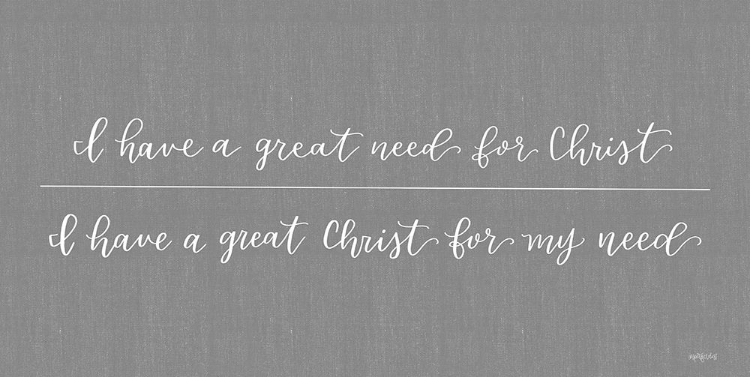 I have a great need for Christ
I have a great Christ for my need